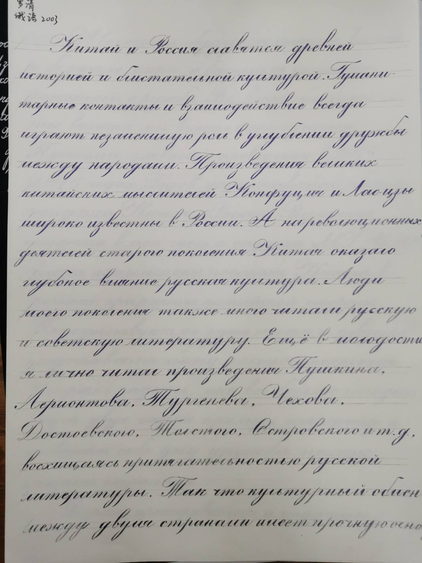 俄语 2003
Китай и Россия славятся древней
историей и блистательной культурой. Гумани-
тарные контакты и взаимодействие всегда
играют незаменимую роль в углублении дружбы
между народами. Произведения великих
китайских мыслителей Конфуция и Лао-цзы
широко известны в России. А на революционных
деятелей старого поколения Китая оказало
глубокое влияние русская культура. Люди
моего поколения также много читали русскую
и советскую литературу. Ещё в молодости
я лично читал произведения Пушкина,
Лермонтова, Тургенева, Чехова,
Достоевского, Толстого, Островского и т.д.,
восхищаясь притягательностью русской
литературы. Так что культурный обмен
между двумя странами имеет прочную